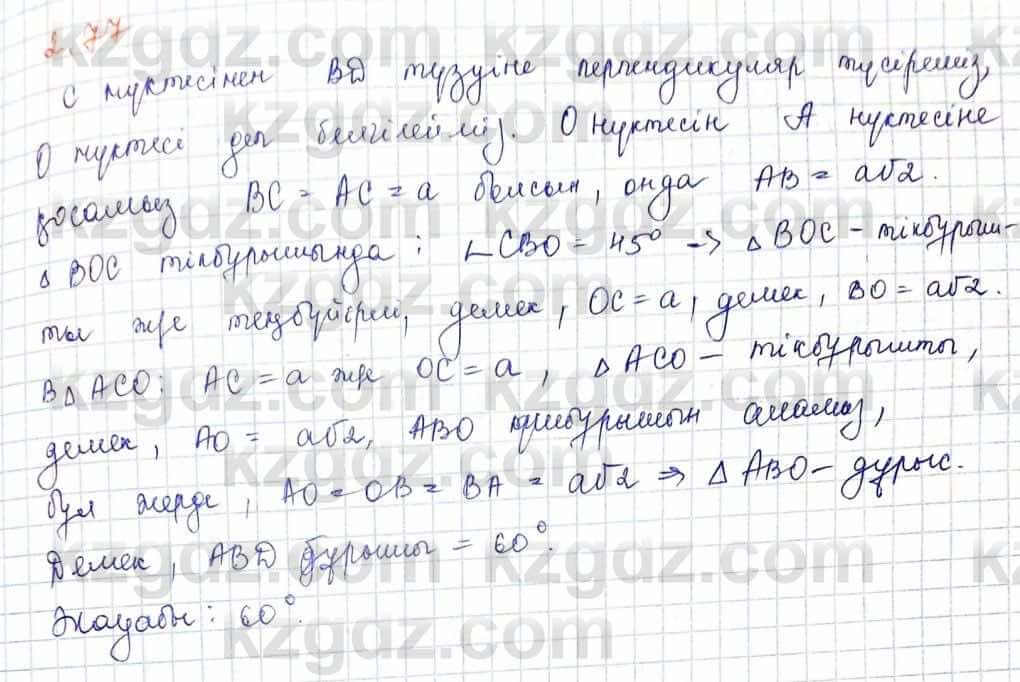 2.77
С нүктесінен BD түзуіне перпендикуляр түсіреміз,
О нүктесі деп белгілейміз. О нүктесін А нүктесіне
қосамыз BC = AC = a болсын, онда AB = a√2.
△ BOC тікбұрышында: ∟CBO = 45° → △ BOC - тікбұрыш-
ты әрі теңбүйірлі, демек, OC = a, демек, BO = a√2.
В△ ACO: AC = a және OC = a, △ ACO - тікбұрышты,
демек, AO = a√2, ABO үшбұрышын аламыз,
бұл жерде, AO = OB = BA = a√2 ⇒ △ ABO - дұрыс.
Демек, ABD бұрышы = 60°.
Жауабы: 60°.
kzgdz.com